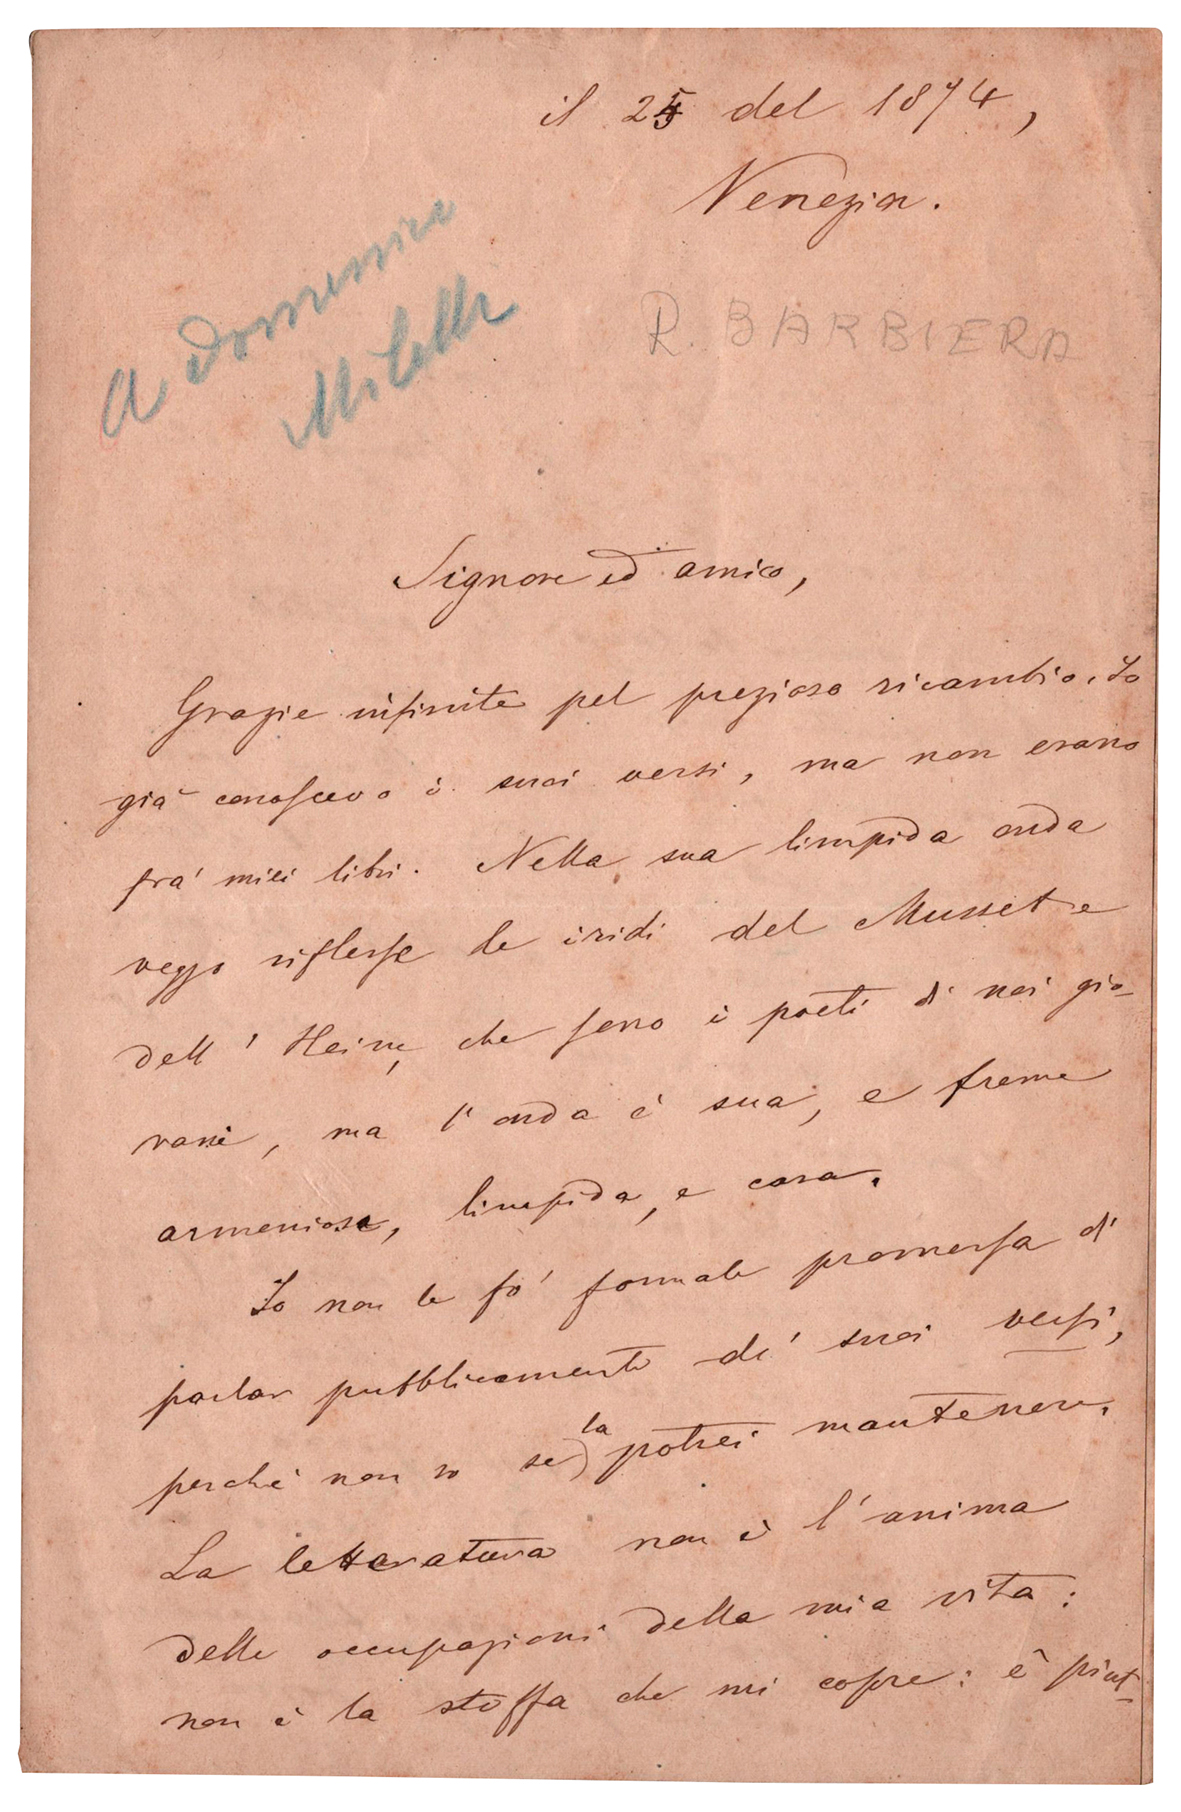 il 25 del 1874,
Venezia.
A Domenico
Milelli
R. BARBIERA
Signore ed amico,
Grazie infinite pel prezioso ricambio. Io
già conoscevo i suoi versi, ma non erano
fra' miei libri. Nella sua limpida onda
veggo riflesse le iridi del Musset e
dell' Heine, che sono i poeti di noi gio-
vani, ma l'onda è sua, e freme
armoniosa, limpida, e cara.
Io non le fo' formale promessa di
parlar pubblicamente de' suoi versi,
perchè non so se la potrei mantenere.
La letteratura non è l'anima
delle occupazioni della mia vita:
non è la stoffa che mi copre: è piut-